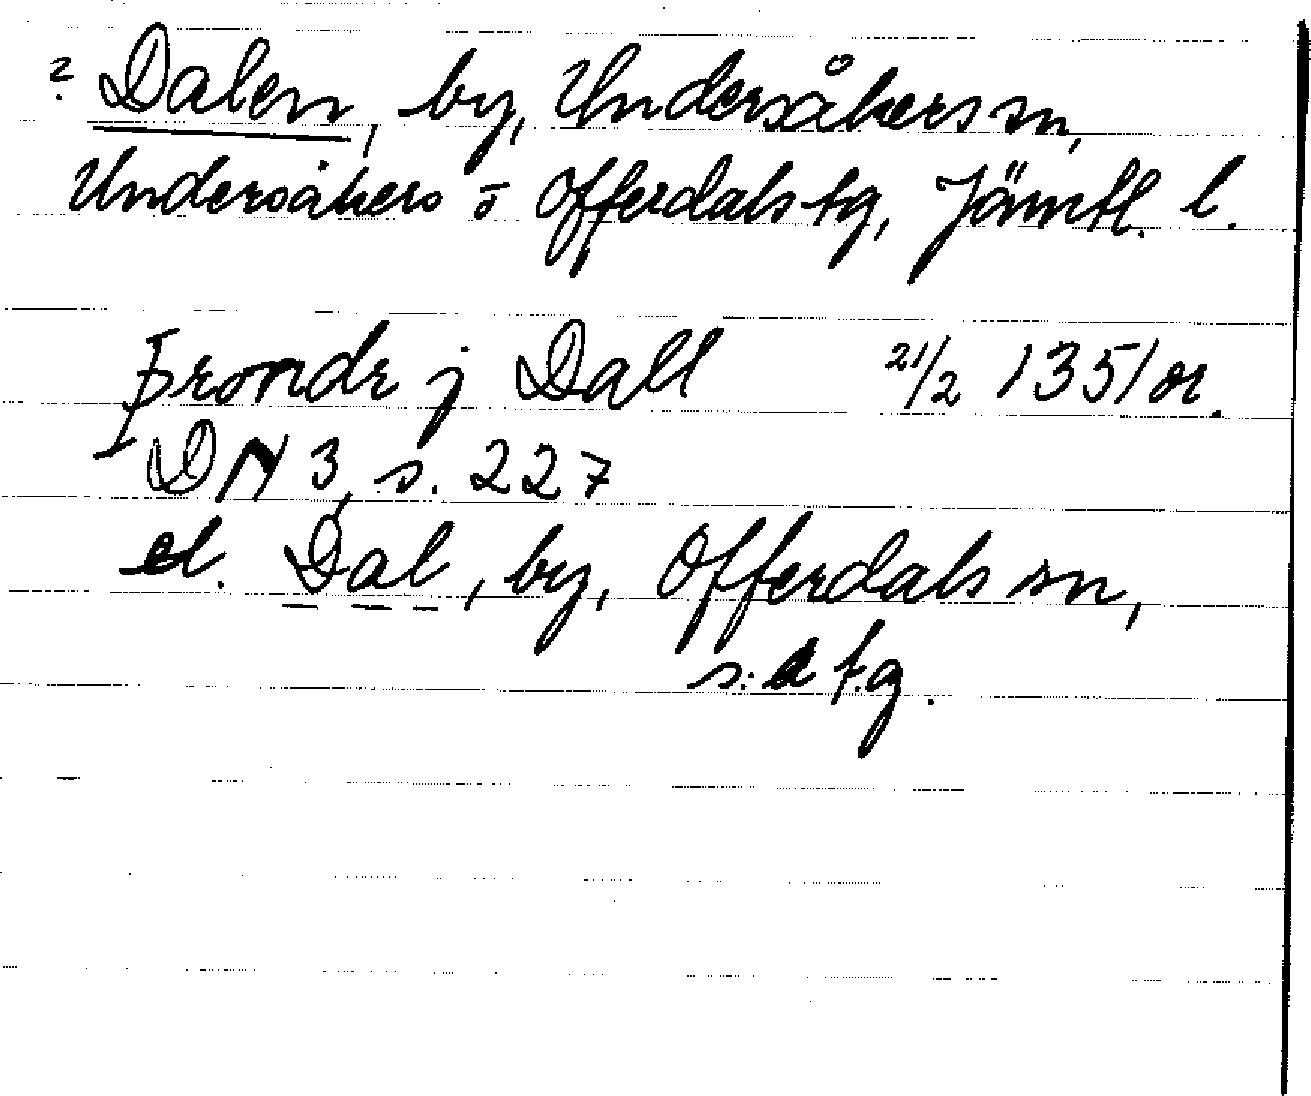 ? Dalen, by, Undersåkers sn,
Undersåkers o Offerdals tg, Jämtl. l.
Þrondr j Dall 21/2 1351 or.
DN 3, s. 227
el. Dal, by, Offerdals sn,
s: a tg.